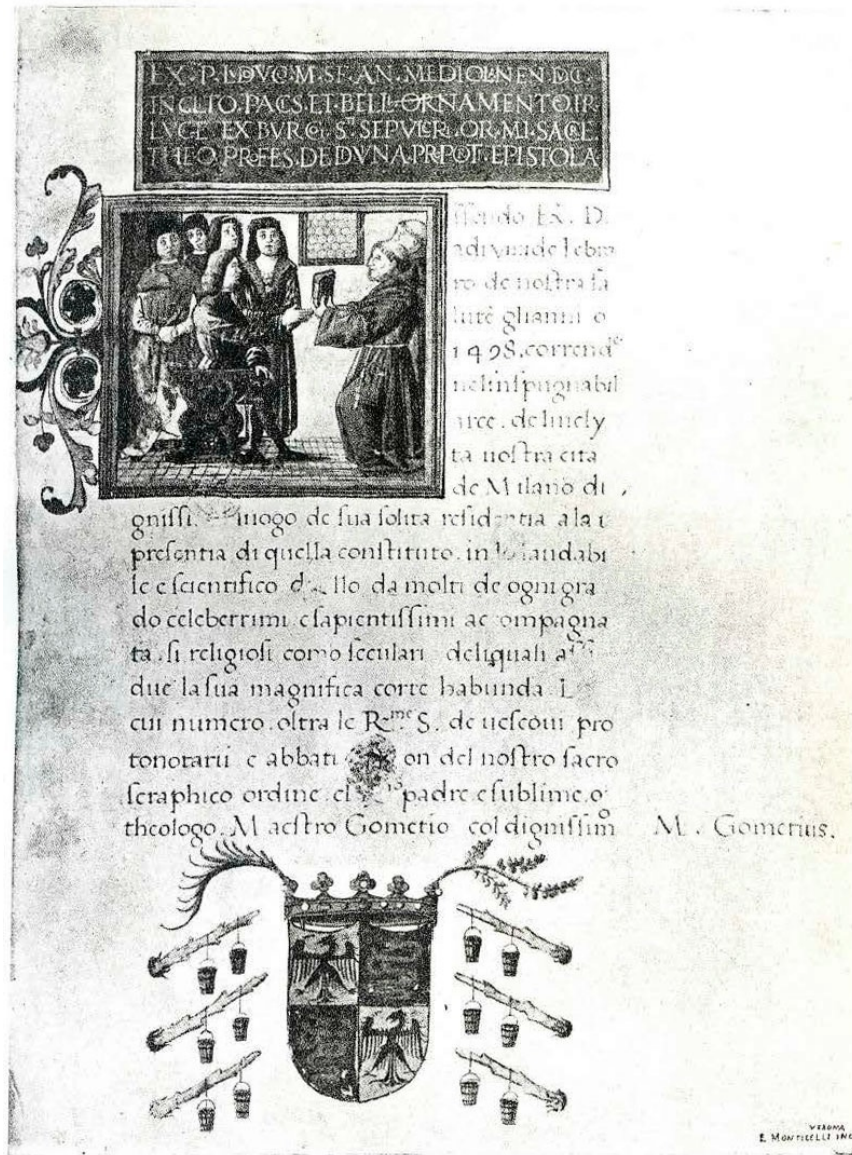 EX . P . LVDVCO . M . SF . AN . MEDIOLANEN . DVC .
INCLITO . PACIS . ET . BELLI . ORNAMENTO . FR
LVCE . EX BVRGI . S . SEPVLCRI . OR . MI . SACRE
THEO . PROFES . DE DVNA . PROPOT . EPISTOLA
ssendo Ex. D.
adi viiii de febra
ro de nostra sa
lute glianni o
1498. correndo
nel inspugnabil
arce. de linely
ta nostra cita
de Milano di
gnissi. luogo de sua solita residentia a la
presentia di quella constituto. in laudabi
le e scientifico duello da molti de ogni gra
do celeberrimi e sapientissimi accompagna
ta. si religiosi como seculari deliquali
due la sua magnifica corte habunda.
cui numero. oltra le R.me S. de uescoui pro
tonotarii e abbati on del nostro sacro
seraphico ordine. el padre e sublime. o
theologo. Maestro Gometio col dignissim M. Gometius.
VERONA
E MONTICELLI INC